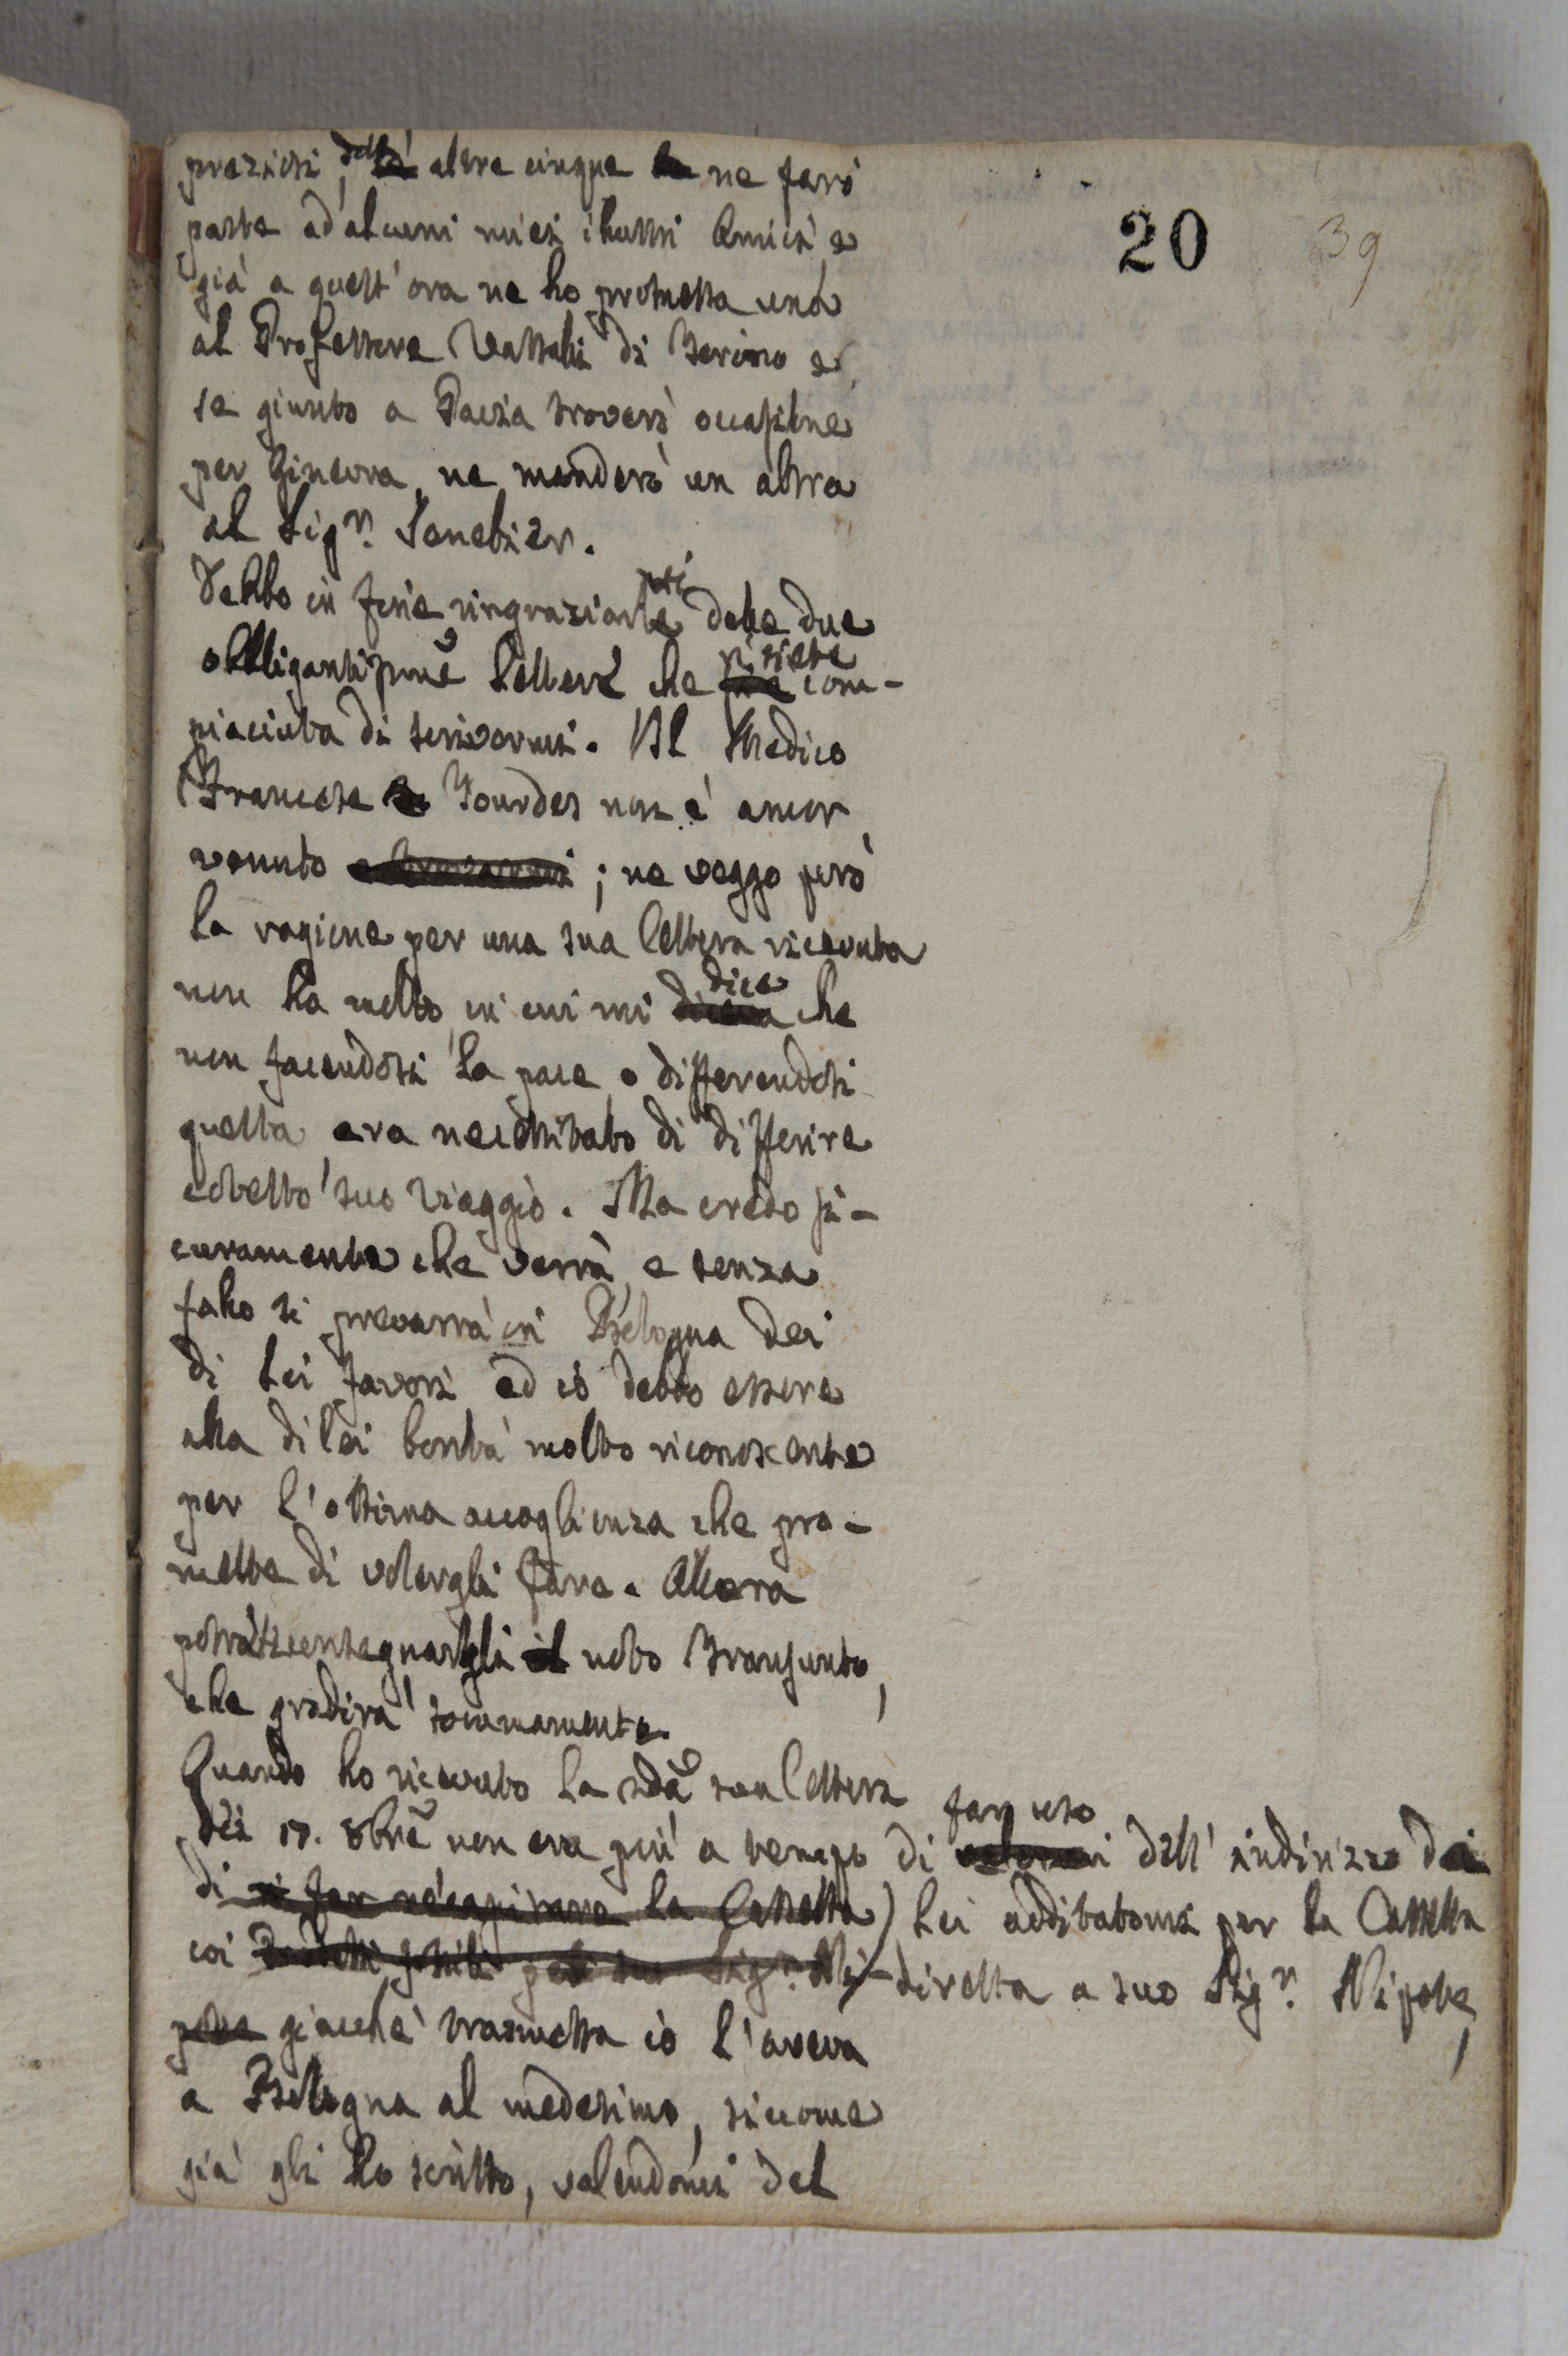 20
39
preziosi, delle altre cinque ne farò
parte ad alcuni miei illustri Amici, e
già a quest'ora ne ho promessa una
al Professore Vassalli di Torino e
se giunto a Pavia troverò occasione
per Ginevra, ne manderò un altra
al Sigr. Senebier.
Debbo in fine ringraziarla poi delle due
obbligantissme lettere che si siete com-
piaciuta di scrivermi. Il Medico
Francese Jourdes non è ancor
venuto ; ne veggo però
la ragione per una sua lettera ricevuta
non ha molto, in cui mi diceva dice che
non facendosi la pace o differendosi
questa, era necessitato di differire
cotesto suo viaggio. Ma credo si-
curamente che verrà, e senza
fallo si prevarrà in Bologna dei
di Lei favori ed io debbo essere
alla di lei bontà molto riconoscente
per l'ottima accoglienza che pro-
mette di volergli fare. Allora
potrà consegnargli il noto Transunto,
che gradirà sommamente.
Quando ho ricevuto la sua lettera
dei 17. 8bre non era più a tempo di far uso dell'indirizzo da
di si far recapitare la Cassetta) Lei additatomi per la Cassetta
coi fossili pel suo Sigr. Ni- diretta a suo Sigr. Nipote,
pote giacchè trasmessa io l'aveva
a Bologna al medesimo, siccome
già gli ho scritto, valendomi del